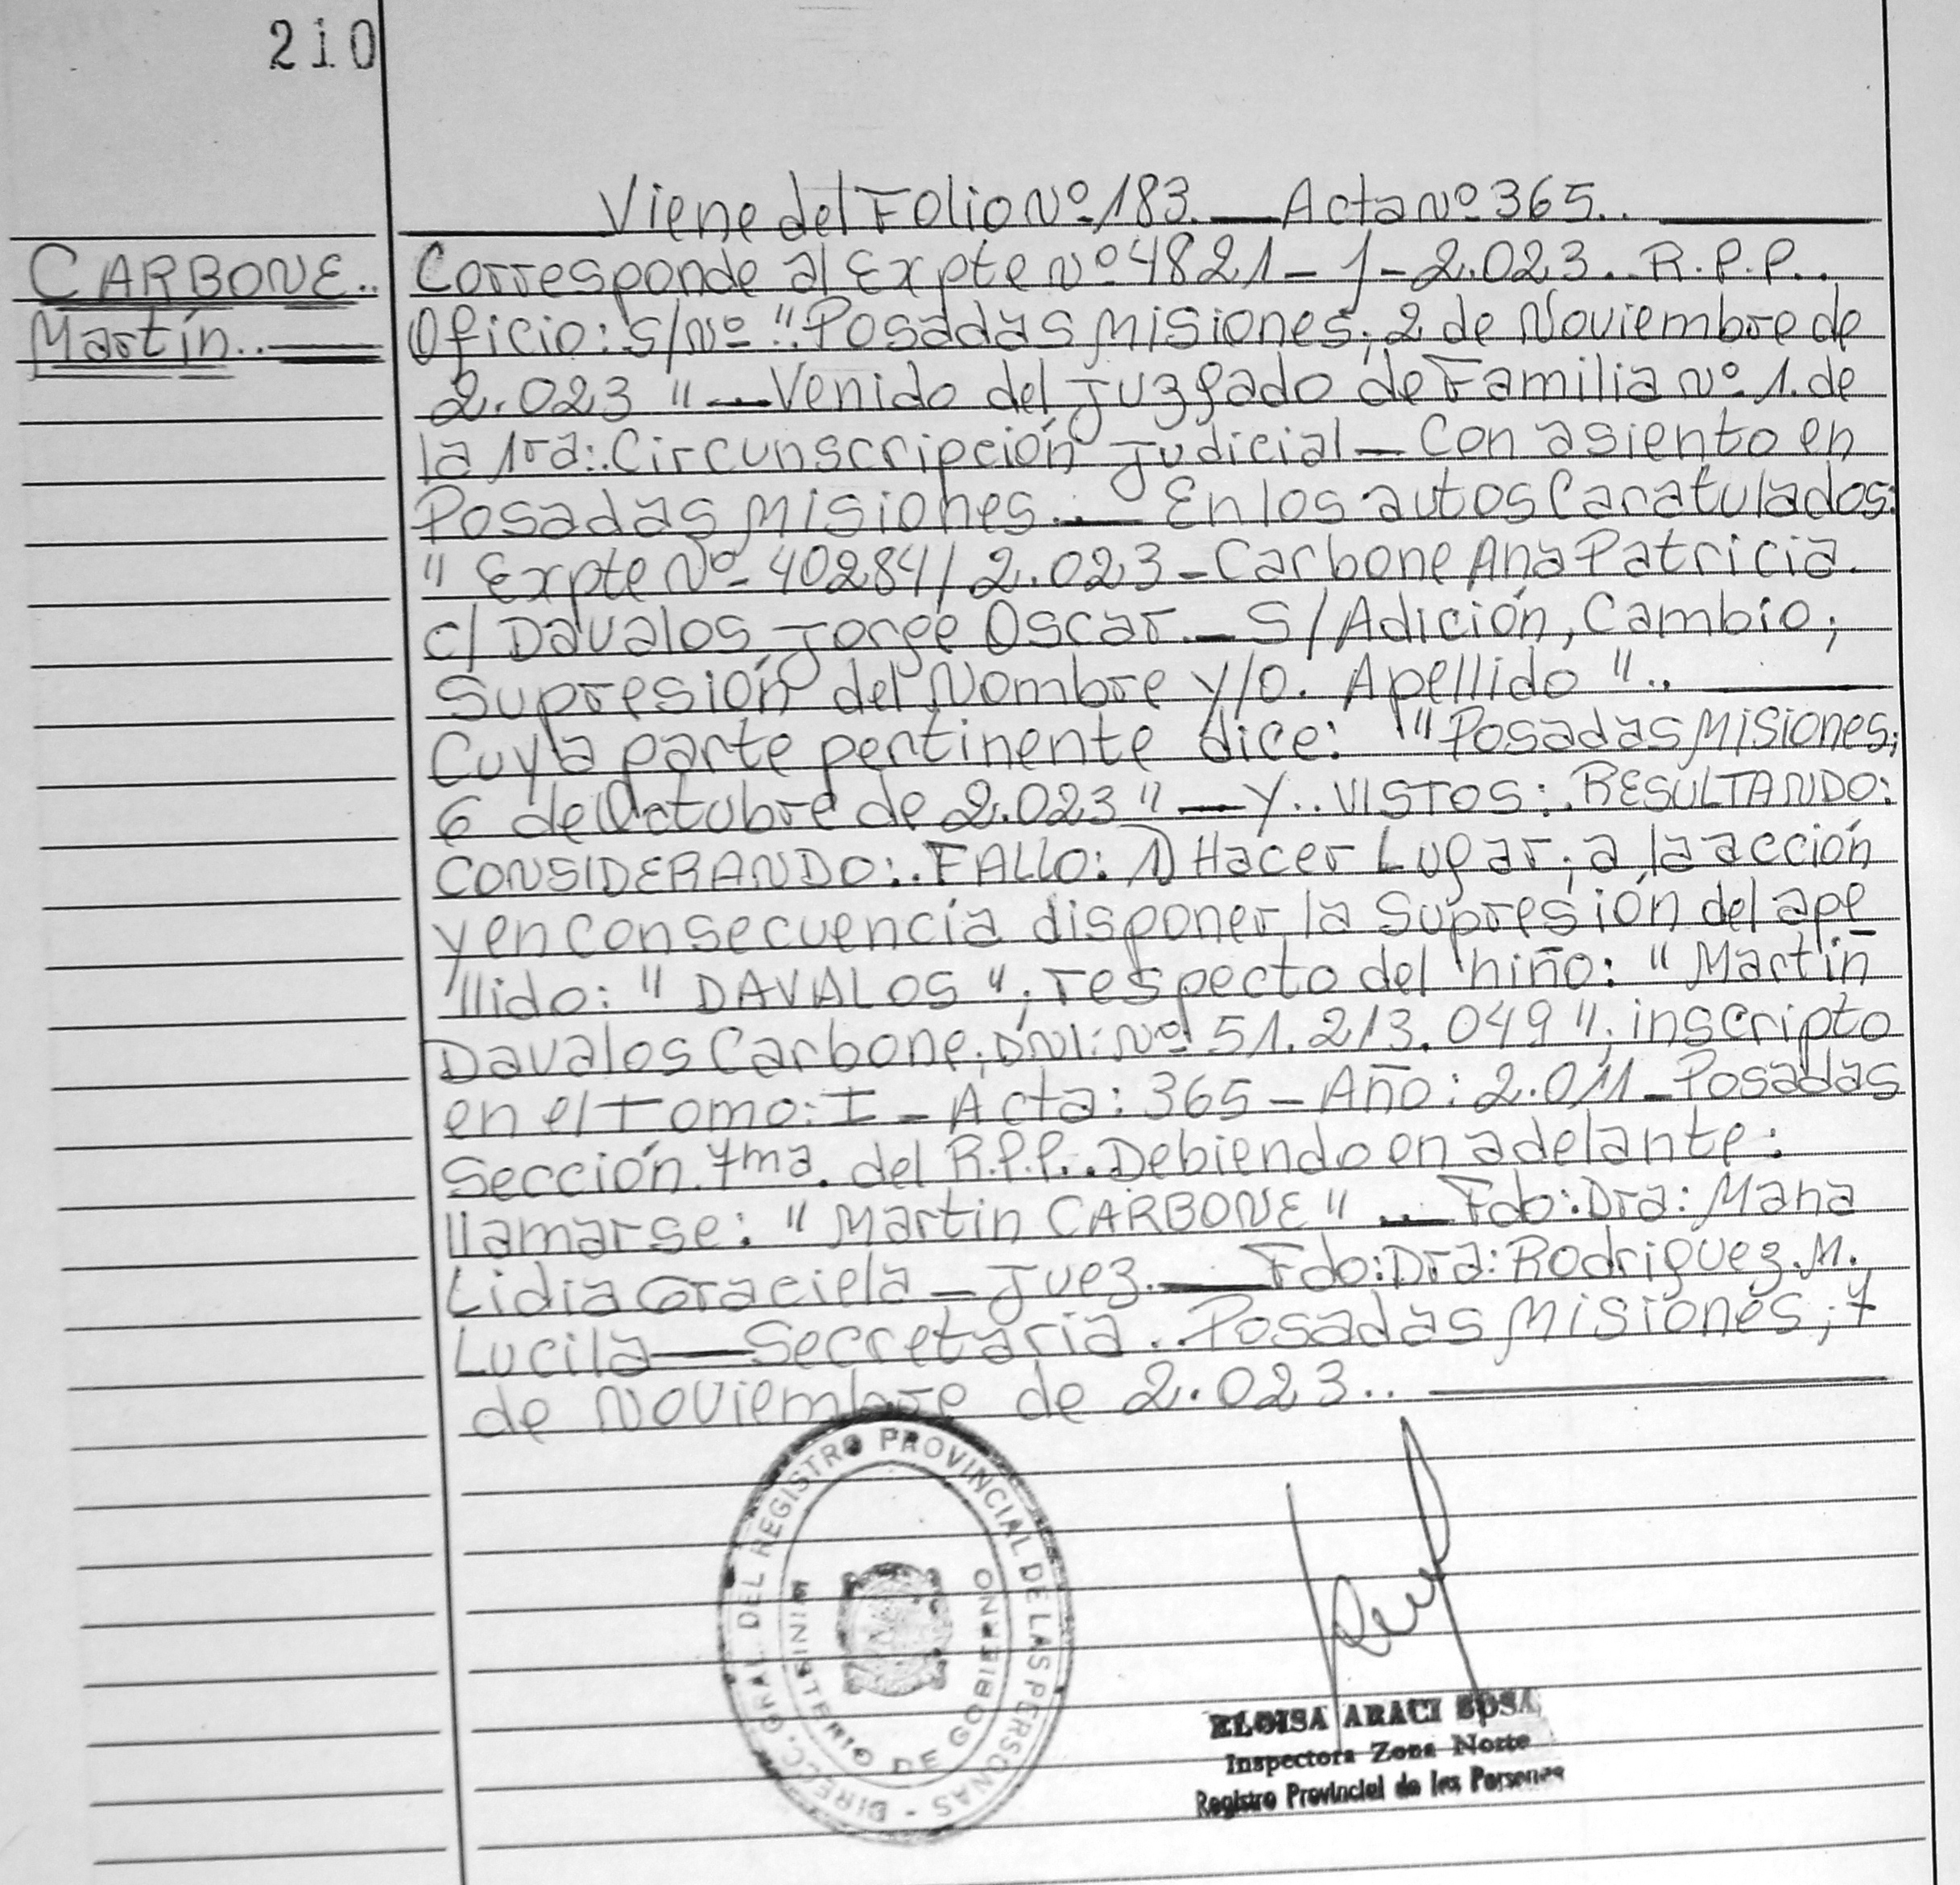 210
Viene del Folio Nº 183. — Acta Nº 365..
CARBONE..
Martín..
Corresponde al Expte Nº 4821-J-2.023.. R.P.P..
Oficio: S/Nº "Posadas Misiones; 2 de Noviembre de
2.023" — Venido del Juzgado de Familia Nº 1. de
la 1ra:. Circunscripción Judicial — Con asiento en
Posadas Misiones.. — En los autos Caratulados:
"Expte Nº 40284/2.023 - Carbone Ana Patricia.
c/ Davalos Jorge Oscar — S/Adición, Cambio;
Supresión del Nombre y/o. Apellido"..
Cuya parte pertinente dice: "Posadas Misiones;
6 de Octubre de 2.023" — Y.. VISTOS:. RESULTANDO:
CONSIDERANDO:. FALLO: 1) Hacer Lugar; a la acción
y en consecuencia disponer la Supresión del ape
llido: "DAVALOS"; respecto del niño: "Martín
Davalos Carbone; DNI: Nº 51.213.049"; inscripto
en el Tomo: I - Acta: 365 - Año: 2.011 - Posadas
Sección 7ma. del R.P.P.. Debiendo en adelante:
llamarse: "Martin CARBONE" — Fdo: Dra: Mana
Lidia Graciela - Juez. — Fdo: Dra: Rodriguez. M.
Lucila — Secretaria.. Posadas Misiones; 7
de Noviembre de 2.023..
DIRECC. GRAL. DEL REGISTRO PROVINCIAL DE LAS PERSONAS -
MINISTERIO DE GOBIERNO
ELOISA ARACI SOSA
Inspectora Zona Norte
Registro Provincial de las Personas